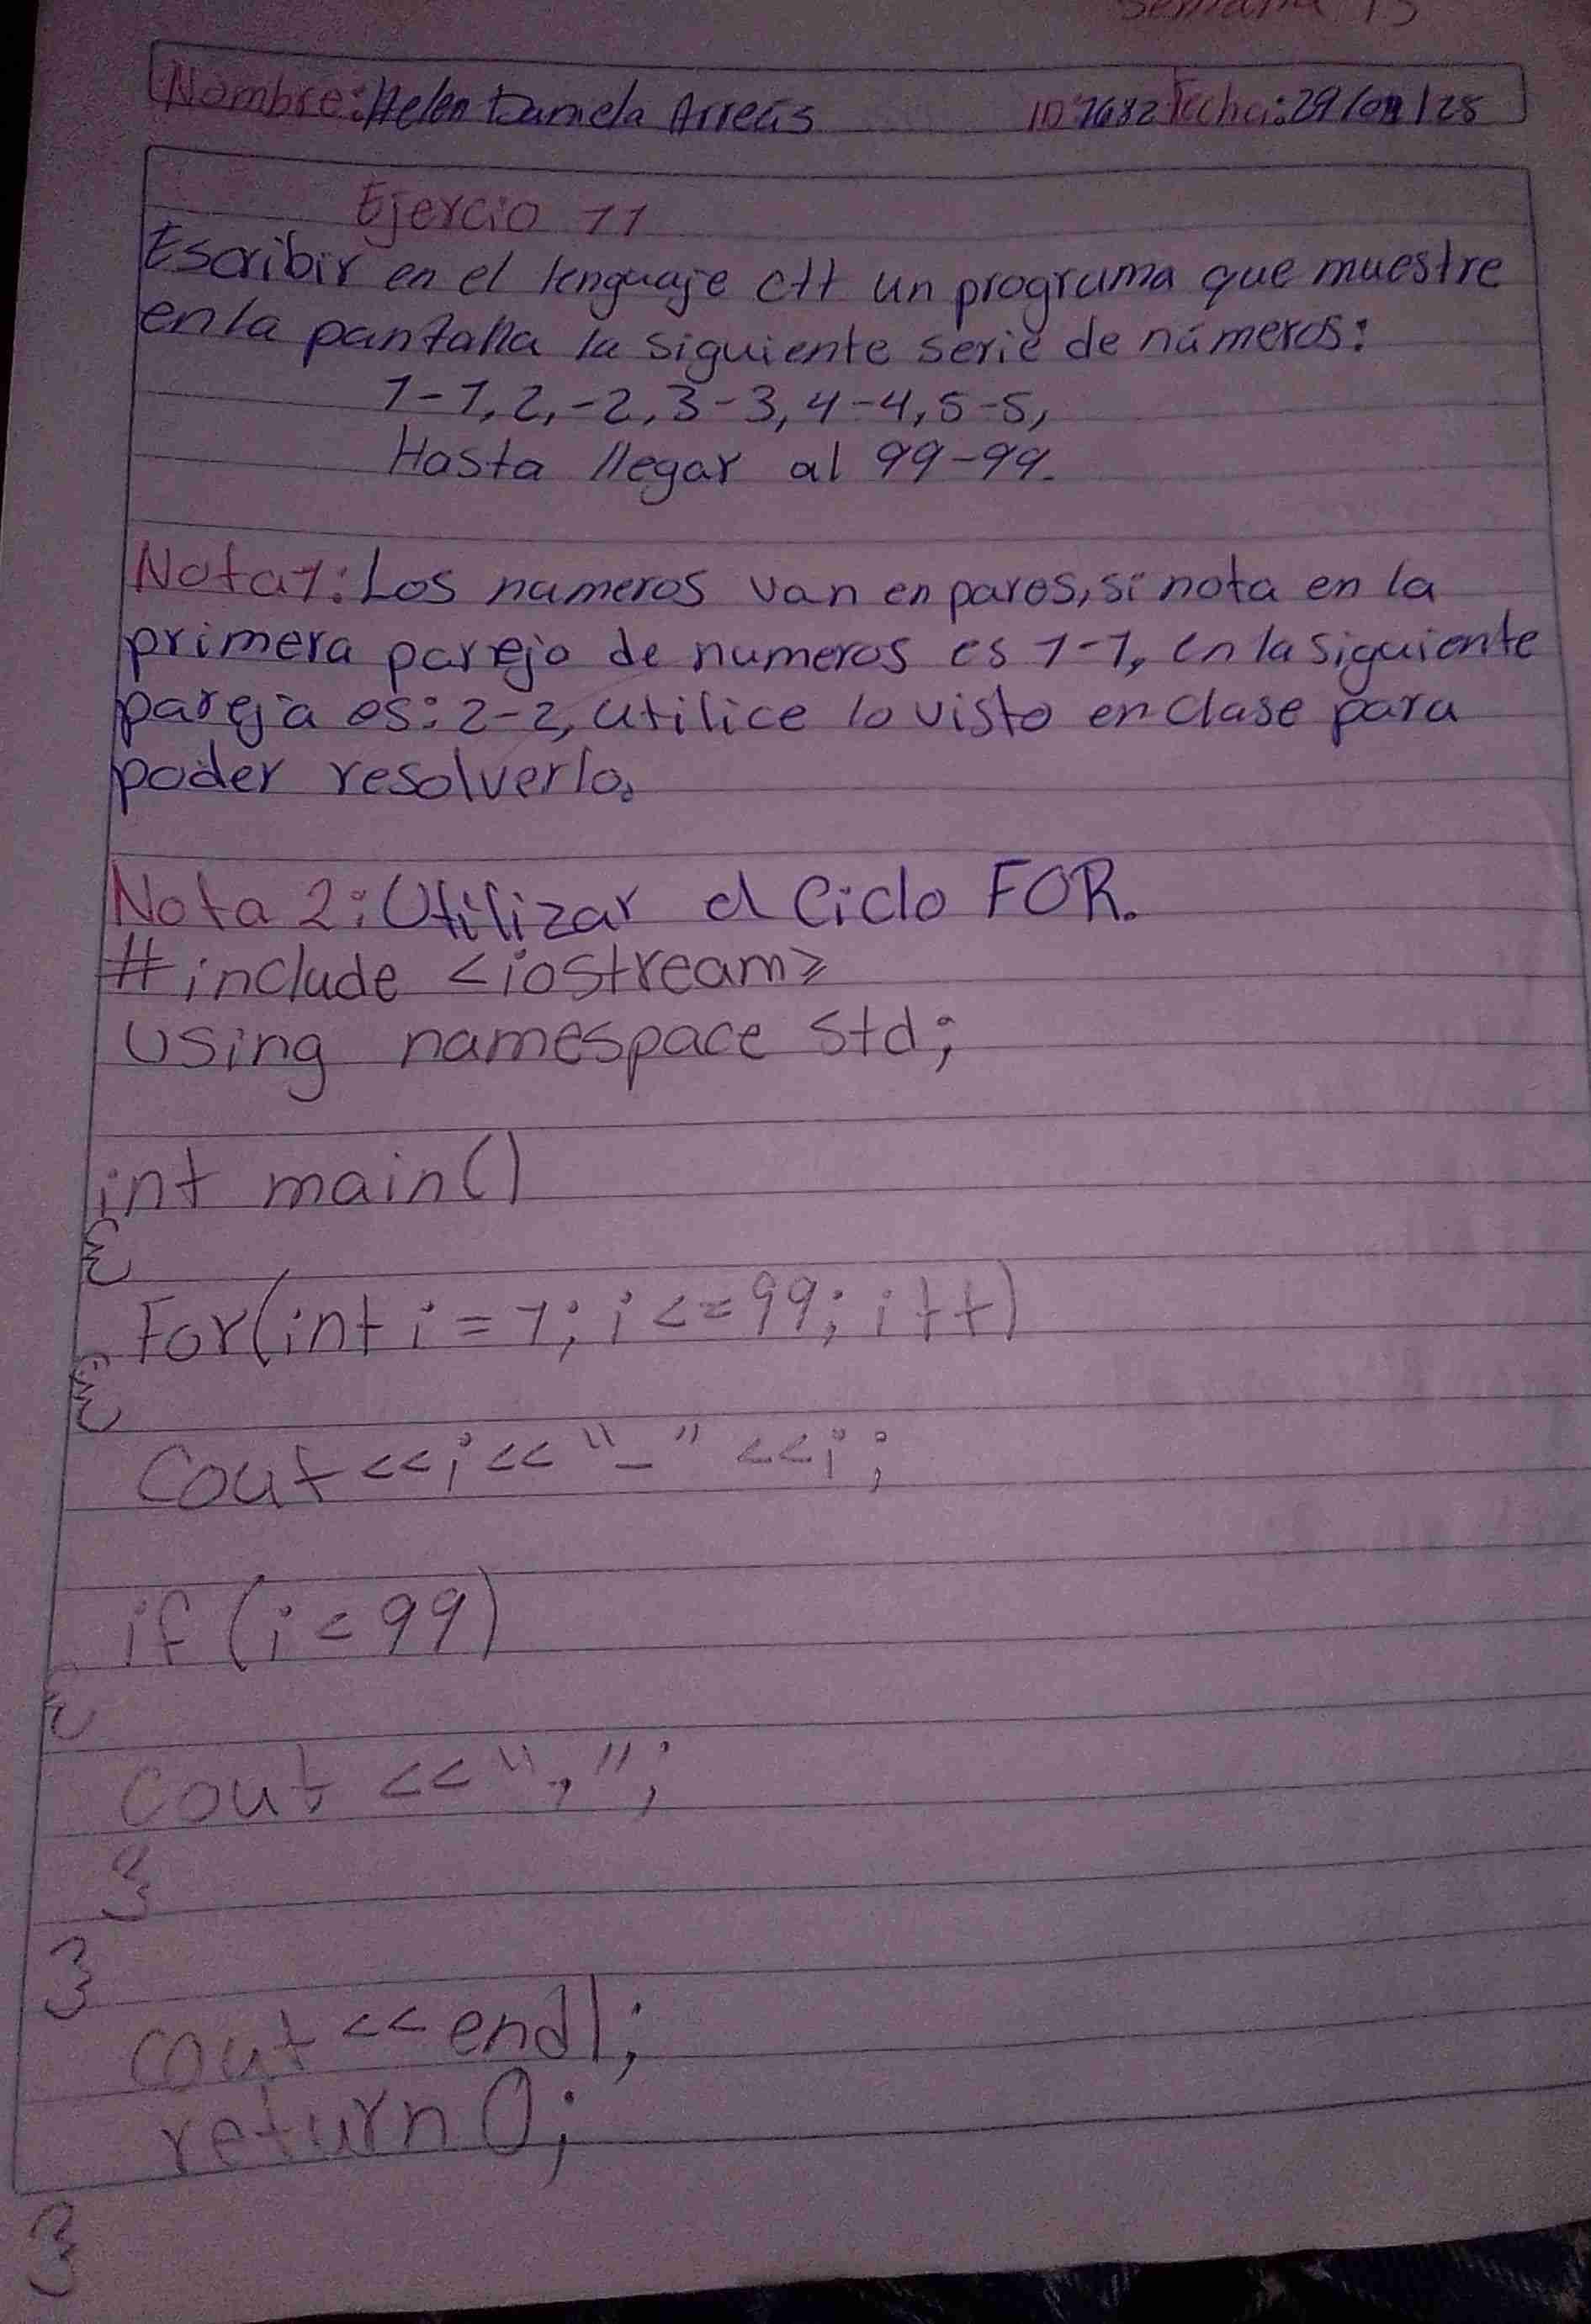 Semana 15
Nombre: Helen Daniela Arreás ID 7682 Fecha: 29/01/25
Ejercio 11
Escribir en el lenguaje C++ un programa que muestre
en la pantalla la siguiente serie de números:
1-1, 2,-2, 3-3, 4-4, 5-5,
Hasta llegar al 99-99.
Nota1: Los numeros van en pares, si nota en la
primera pareja de numeros es 1-1, en la siguiente
pareja es: 2-2, utilice lo visto en clase para
poder resolverlo.
Nota 2: Utilizar el Ciclo FOR.
#include <iostream>
using namespace std;
int main()
{
For(int i = 1; i <= 99; i++)
{
Cout <<i<< "-" <<i;
if (i < 99)
{
Cout << ",";
}
}
cout << endl;
return 0;
}